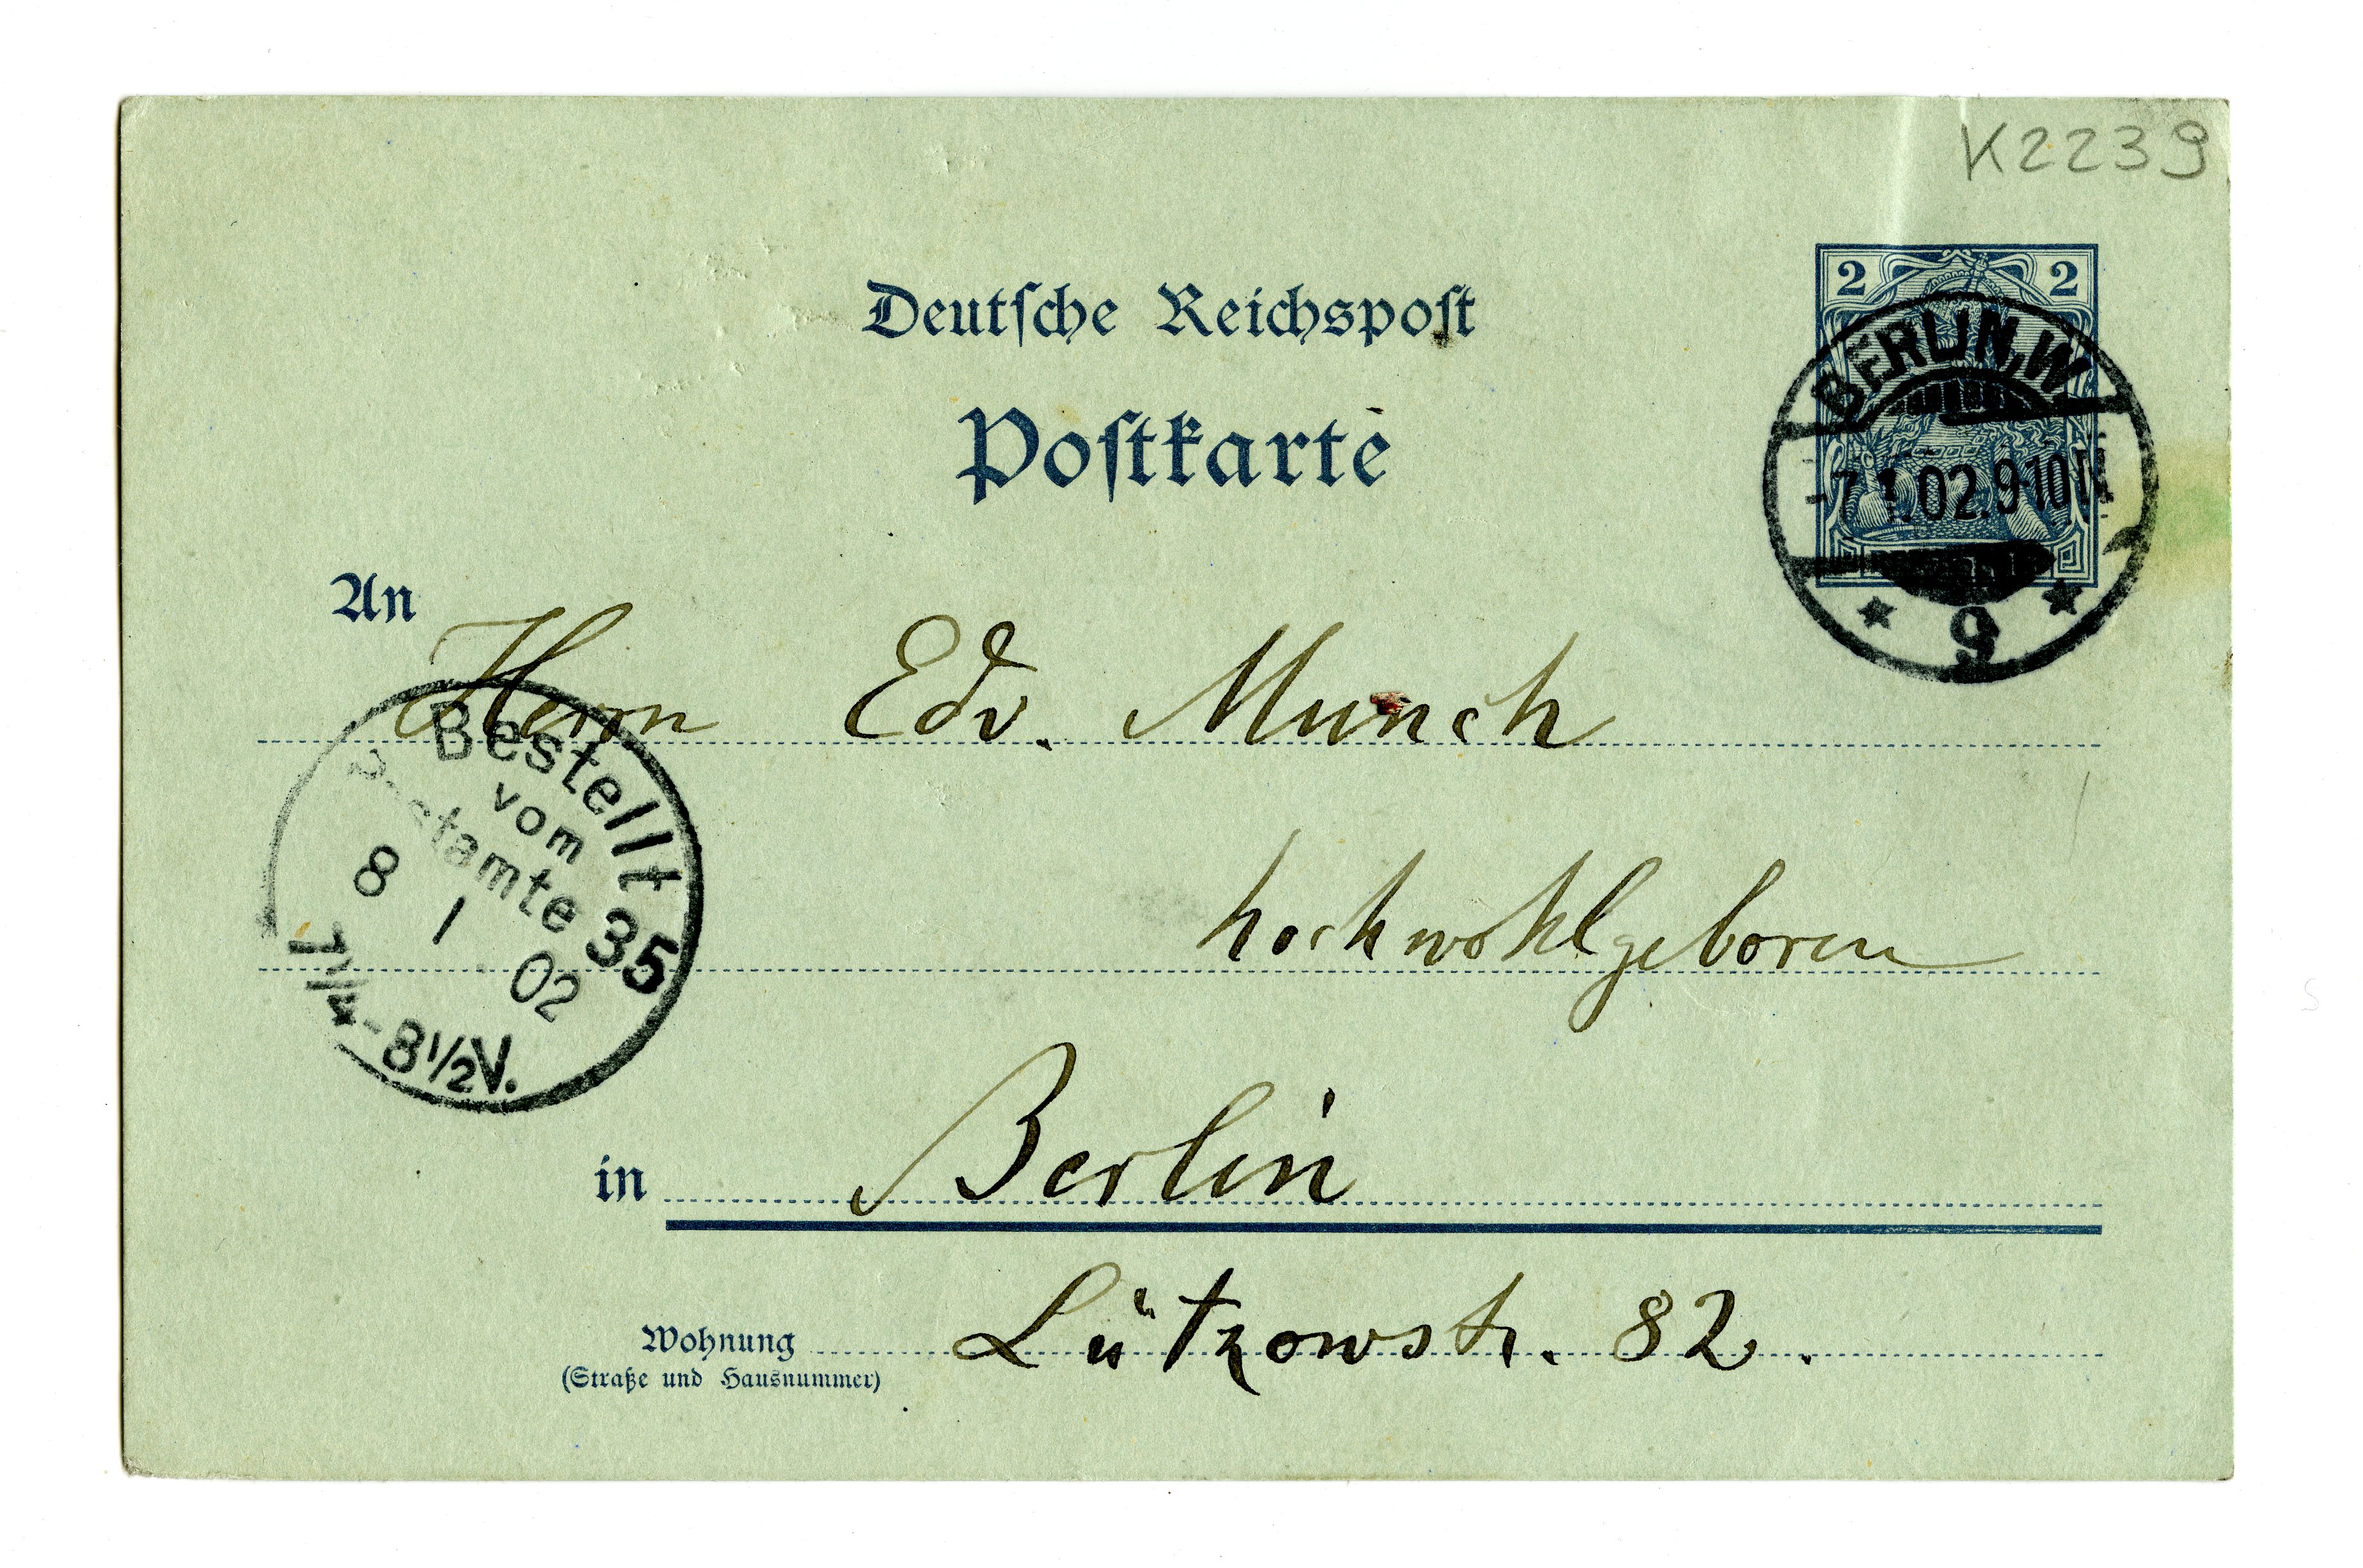 K2239
2 2
Deutsche Reichspost
Postkarte
BERLIN, W
-7.1.02.9-10N
* 9 *
An Herrn Edv. Munch
hochwohlgeboren
Bestellt
vom
Postamte 35
8 1 02
7¼-8½V.
in Berlin
Wohnung Lützowstr. 82.
(Straße und Hausnummer)